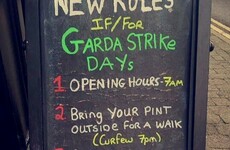 NEW RULES
IF/FOR
GARDA STRIKE
DAYS
1 OPENING HOURS-7AM
2 BRING YOUR PINT
OUTSIDE FOR A WALK
(CURFEW 7pm)